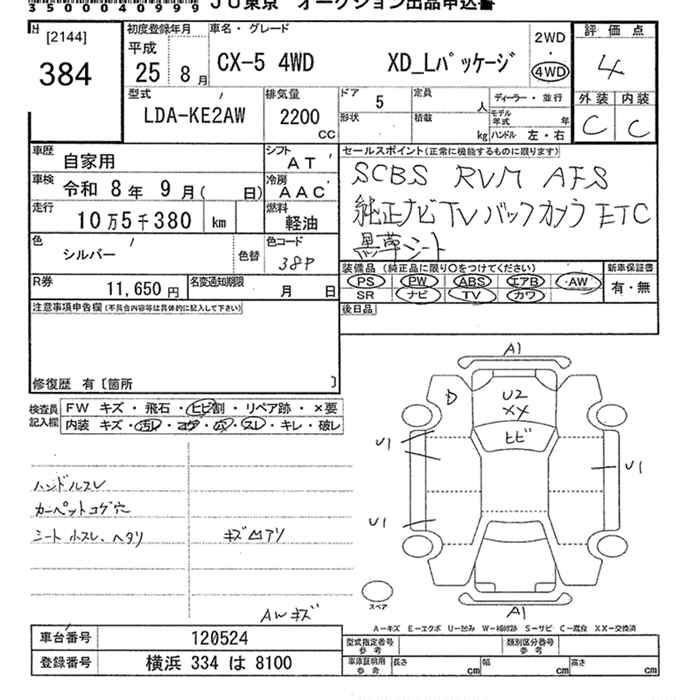 35000040999 JU東京 オークション出品申込書
[2144]
384
初度登録年月
平成
25 8 月
車名・グレード
CX-5 4WD XD_Lパッケージ
2WD
4WD
評価点
4
外装 内装
C C
型式
LDA-KE2AW
排気量
2200
CC
ドア
5
定員
人
ディーラー・並行
モデル年式
年
形状
積載
kg
ハンドル 左・右
車歴
自家用
シフト
AT
車検
令和 8年 9月( 日)
冷房
AAC
走行
10万5千380 km
燃料
軽油
色
シルバー
色替
色コード
38P
R券
11,650 円
名変通知期限
月 日
セールスポイント(正常に機能するものに限ります)
SCBS RVM AFS
純正ナビ TV バックカメラ ETC
黒革シート
装備品(純正品に限り○をつけてください)
PS PW ABS エアB ・AW
SR ナビ TV カワ
新車保証書
有・無
後日品
注意事項申告欄(不具合内容等は具体的に記入して下さい)
修復歴 有〔箇所 〕
検査員記入欄
FW キズ・飛石・ヒビ割・リペア跡・×要
内装 キズ・汚レ・コゲ・穴・スレ・キレ・破レ
ハンドルスレ
カーペットコゲ穴
シート ホスレ、ヘタリ
キズ凹アリ
AWキズ
A1
D
U2
XX
ヒビ
U1
U1
U1
A1
スペア
A-キズ E-エクボ U-凹み W-補修跡 S-サビ C-腐食 XX-交換済
車台番号
120524
登録番号
横浜 334 は 8100
型式指定番号
参考
類別区分番号
参考
車庫証明用
参考
長さ
cm
幅
cm
高さ
cm